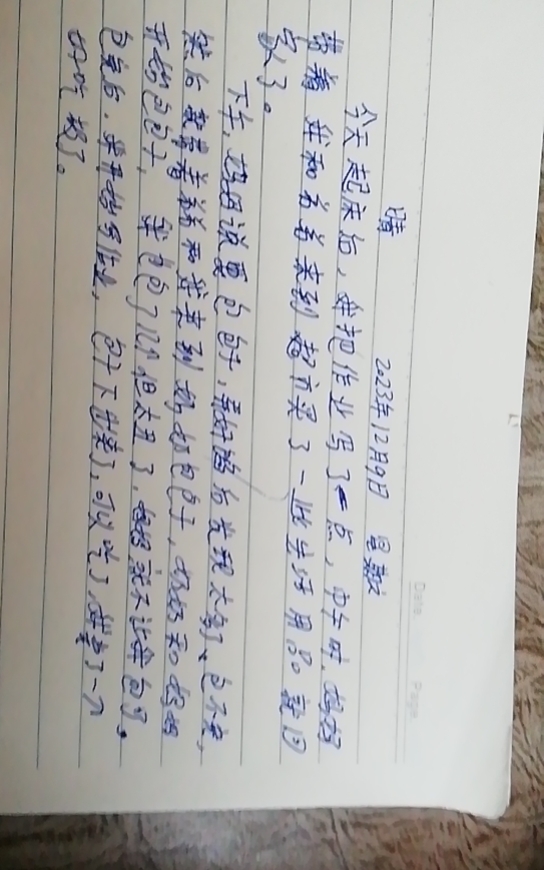 Date Page
晴 2023年12月9日 星期六
今天起床后,我把作业写了一点,中午时,妈妈
带着我和爷爷来到超市买了一些生活用品就回
家了。
下午,妈妈说要包包子,弄好馅后发现太多了、包不完,
然后就带着爷爷和我来到奶奶包包子,奶奶和妈妈
开始包包子,我包了几个但太丑了,妈妈就不让我包了。
包完后,我开始写作业,包子下出来了,可以吃了,我拿了一个
好吃极了。